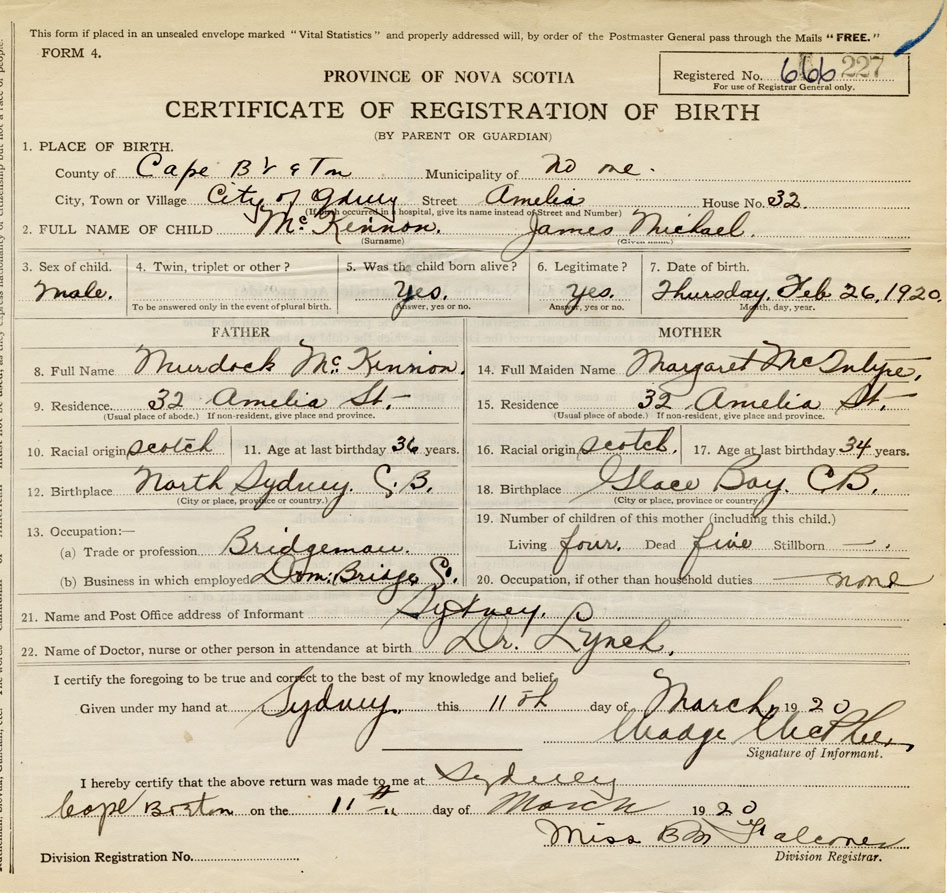 This form if placed in an unsealed envelope marked "Vital Statistics" and properly addressed will, by order of the Postmaster General pass through the Mails "FREE."
FORM 4.
PROVINCE OF NOVA SCOTIA
Registered No. 666 227
For use of Registrar General only.
CERTIFICATE OF REGISTRATION OF BIRTH
(BY PARENT OR GUARDIAN)
1. PLACE OF BIRTH.
County of Cape Breton Municipality of no one.
City, Town or Village City of Sydney Street Amelia House No. 32
(If birth occurred in a hospital, give its name instead of Street and Number)
2. FULL NAME OF CHILD McKinnon. James Michael.
(Surname) (Given name)
3. Sex of child. 4. Twin, triplet or other? 5. Was the child born alive? 6. Legitimate? 7. Date of birth.
Male. Yes. Yes. Thursday, Feb 26, 1920
To be answered only in the event of plural birth. Answer, yes or no. Answer, yes or no. Month, day, year.
FATHER MOTHER
8. Full Name Murdock McKinnon. 14. Full Maiden Name Margaret McIntyre,
9. Residence. 32 Amelia St.- 15. Residence 32 Amelia St.-
(Usual place of abode.) If non-resident, give place and province. (Usual place of abode.) If non-resident, give place and province.
10. Racial origin scotch 11. Age at last birthday 36 years. 16. Racial origin scotch. 17. Age at last birthday. 34 years.
12. Birthplace North Sydney. C.B. 18. Birthplace Glace Bay. C.B.
(City or place, province or country.) (City or place, province or country)
13. Occupation:— 19. Number of children of this mother (including this child.)
(a) Trade or profession Bridgeman. Living four. Dead five Stillborn —.
(b) Business in which employed Dom. Bridge Co. 20. Occupation, if other than household duties — none
21. Name and Post Office address of Informant Sydney.
22. Name of Doctor, nurse or other person in attendance at birth Dr. Lynch.
I certify the foregoing to be true and correct to the best of my knowledge and belief,
Given under my hand at Sydney. this 11th day of March, 1920
Madge McPhee
Signature of Informant.
I hereby certify that the above return was made to me at Sydney
Cape Breton on the 11th day of March 1920
Miss B M Falconer
Division Registration No. Division Registrar.